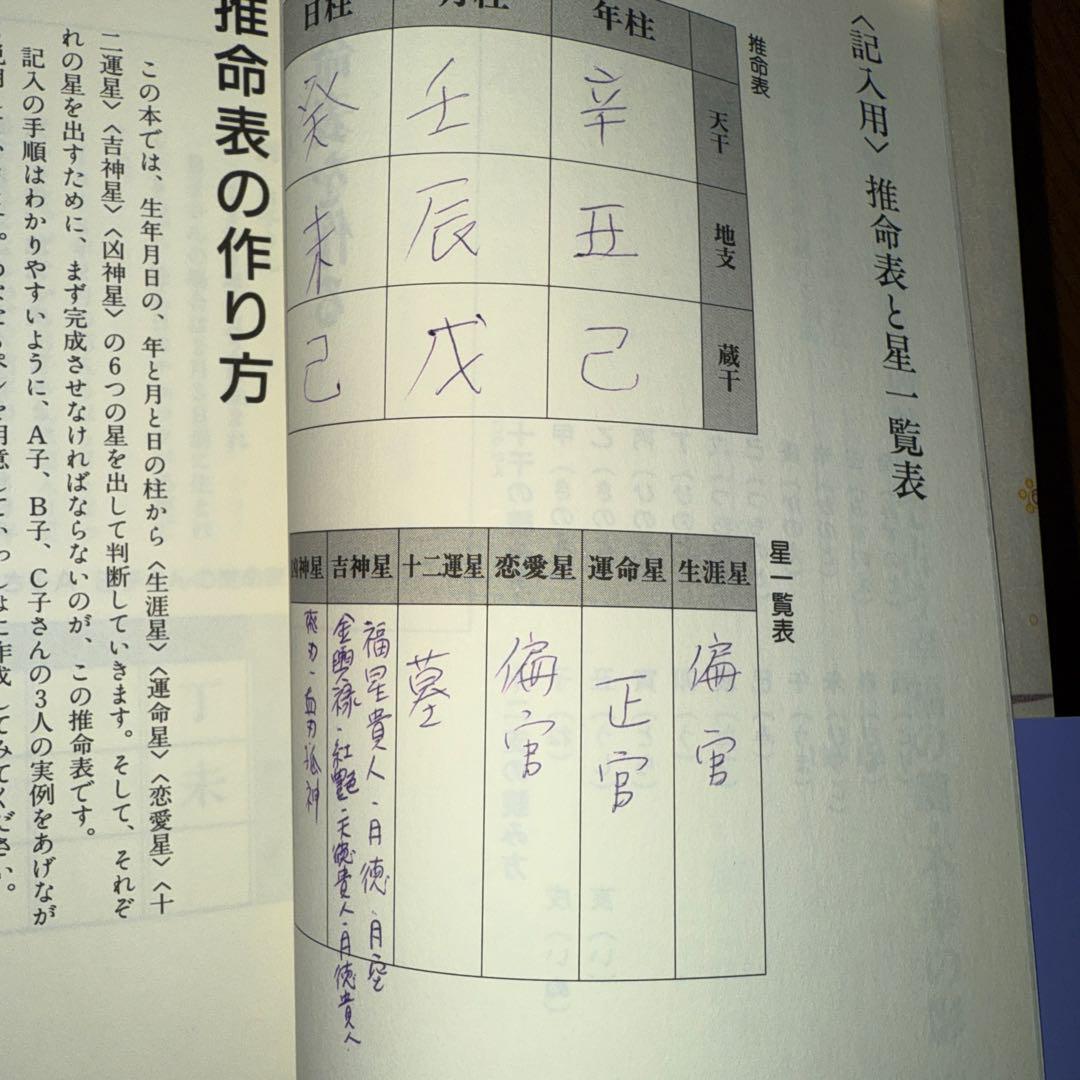 〈記入用〉推命表と星一覧表
推命表
天干
地支
蔵干
年柱
辛
丑
己
月柱
壬
辰
戊
日柱
癸
未
己
星一覧表
生涯星
偏官
運命星
正官
恋愛星
偏官
十二運星
墓
吉神星
福星貴人・月徳・月空
金輿禄・紅艶・天徳貴人・月徳貴人
神星
飛刃・血刃 孤神
推命表の作り方
この本では、生年月日の、年と月と日の柱から〈生涯星〉〈運命星〉〈恋愛星〉〈十
二運星〉〈吉神星〉〈凶神星〉の6つの星を出して判断していきます。そして、それぞ
れの星を出すために、まず完成させなければならないのが、この推命表です。
記入の手順はわかりやすいように、A子、B子、C子さんの3人の実例をあげなが